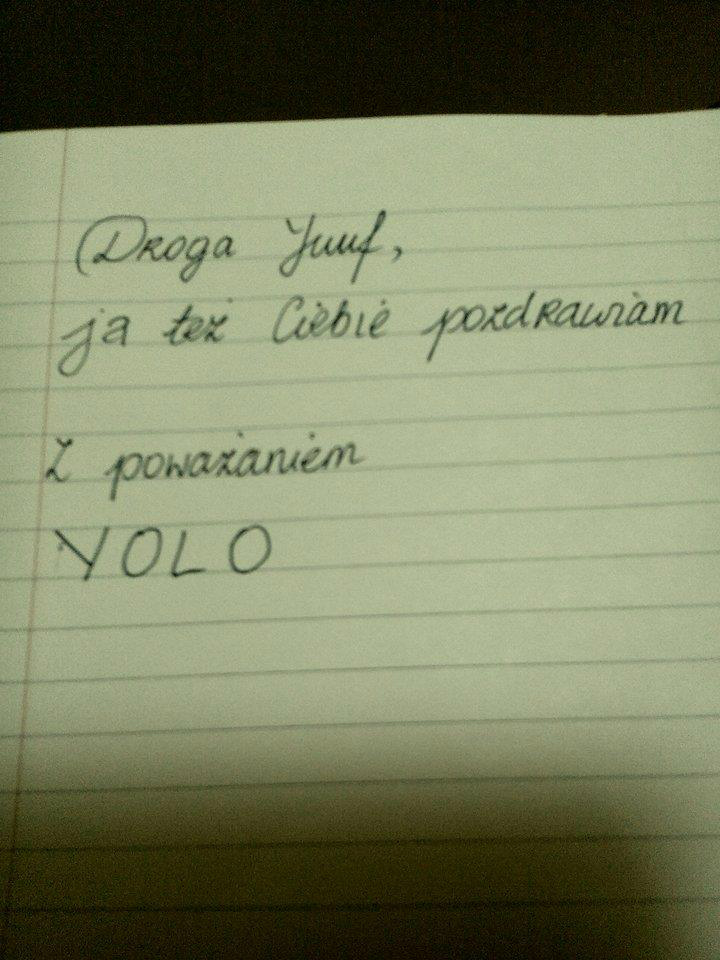 Droga Yuuf,
ja też Ciebie pozdrawiam
Z poważaniem
YOLO